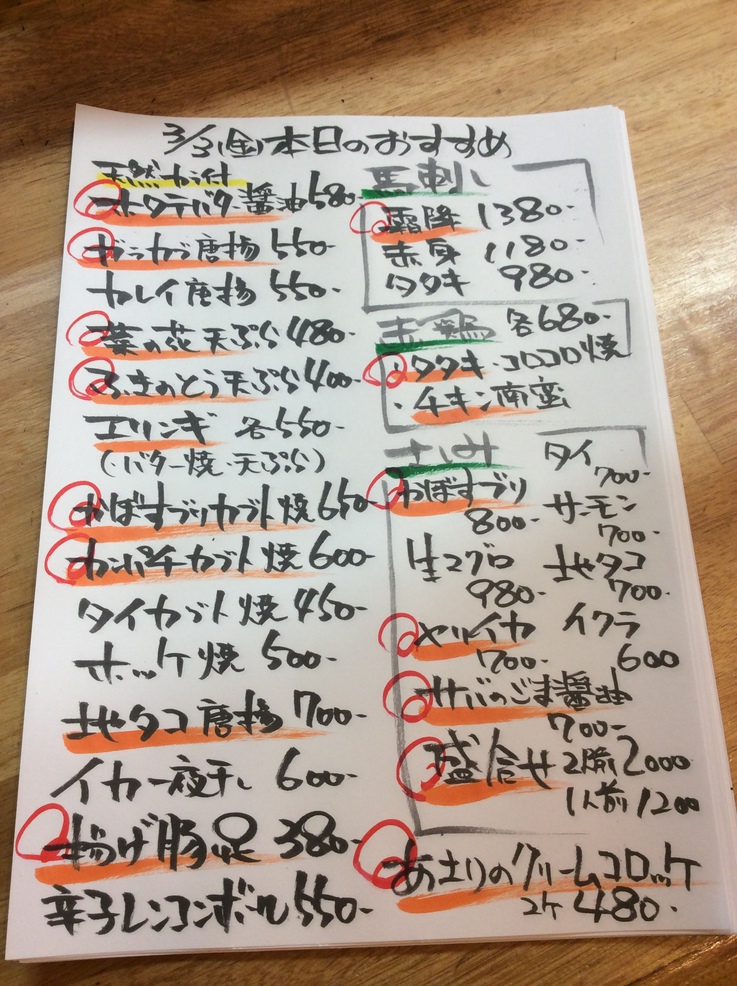 3/3(金)本日のおすすめ
天然カン付
ホタテバター醤油580-
ガラカブ唐揚550-
カレイ唐揚550-
菜の花天ぷら480-
ふきのとう天ぷら400-
エリンギ 各550-
(・バター焼・天ぷら)
かぼすブリカブト焼650-
カンパチカブト焼600-
タイカブト焼450-
ホッケ焼500-
地タコ唐揚700-
イカ一夜干し600-
揚げ豚足380-
辛子レンコンボール550-
馬刺し
霜降1380-
赤身1180-
タタキ980-
赤鶏 各680-
・タタキ・コロコロ焼
・チキン南蛮
さしみ
タイ
700-
かぼすブリ
800-
サーモン
700-
生マグロ
980-
地タコ
700-
ヤリイカ
700-
イクラ
600
サバのごま醤油
700-
盛合せ 2人前2000
1人前1200
あさりのクリームコロッケ
2ケ480-